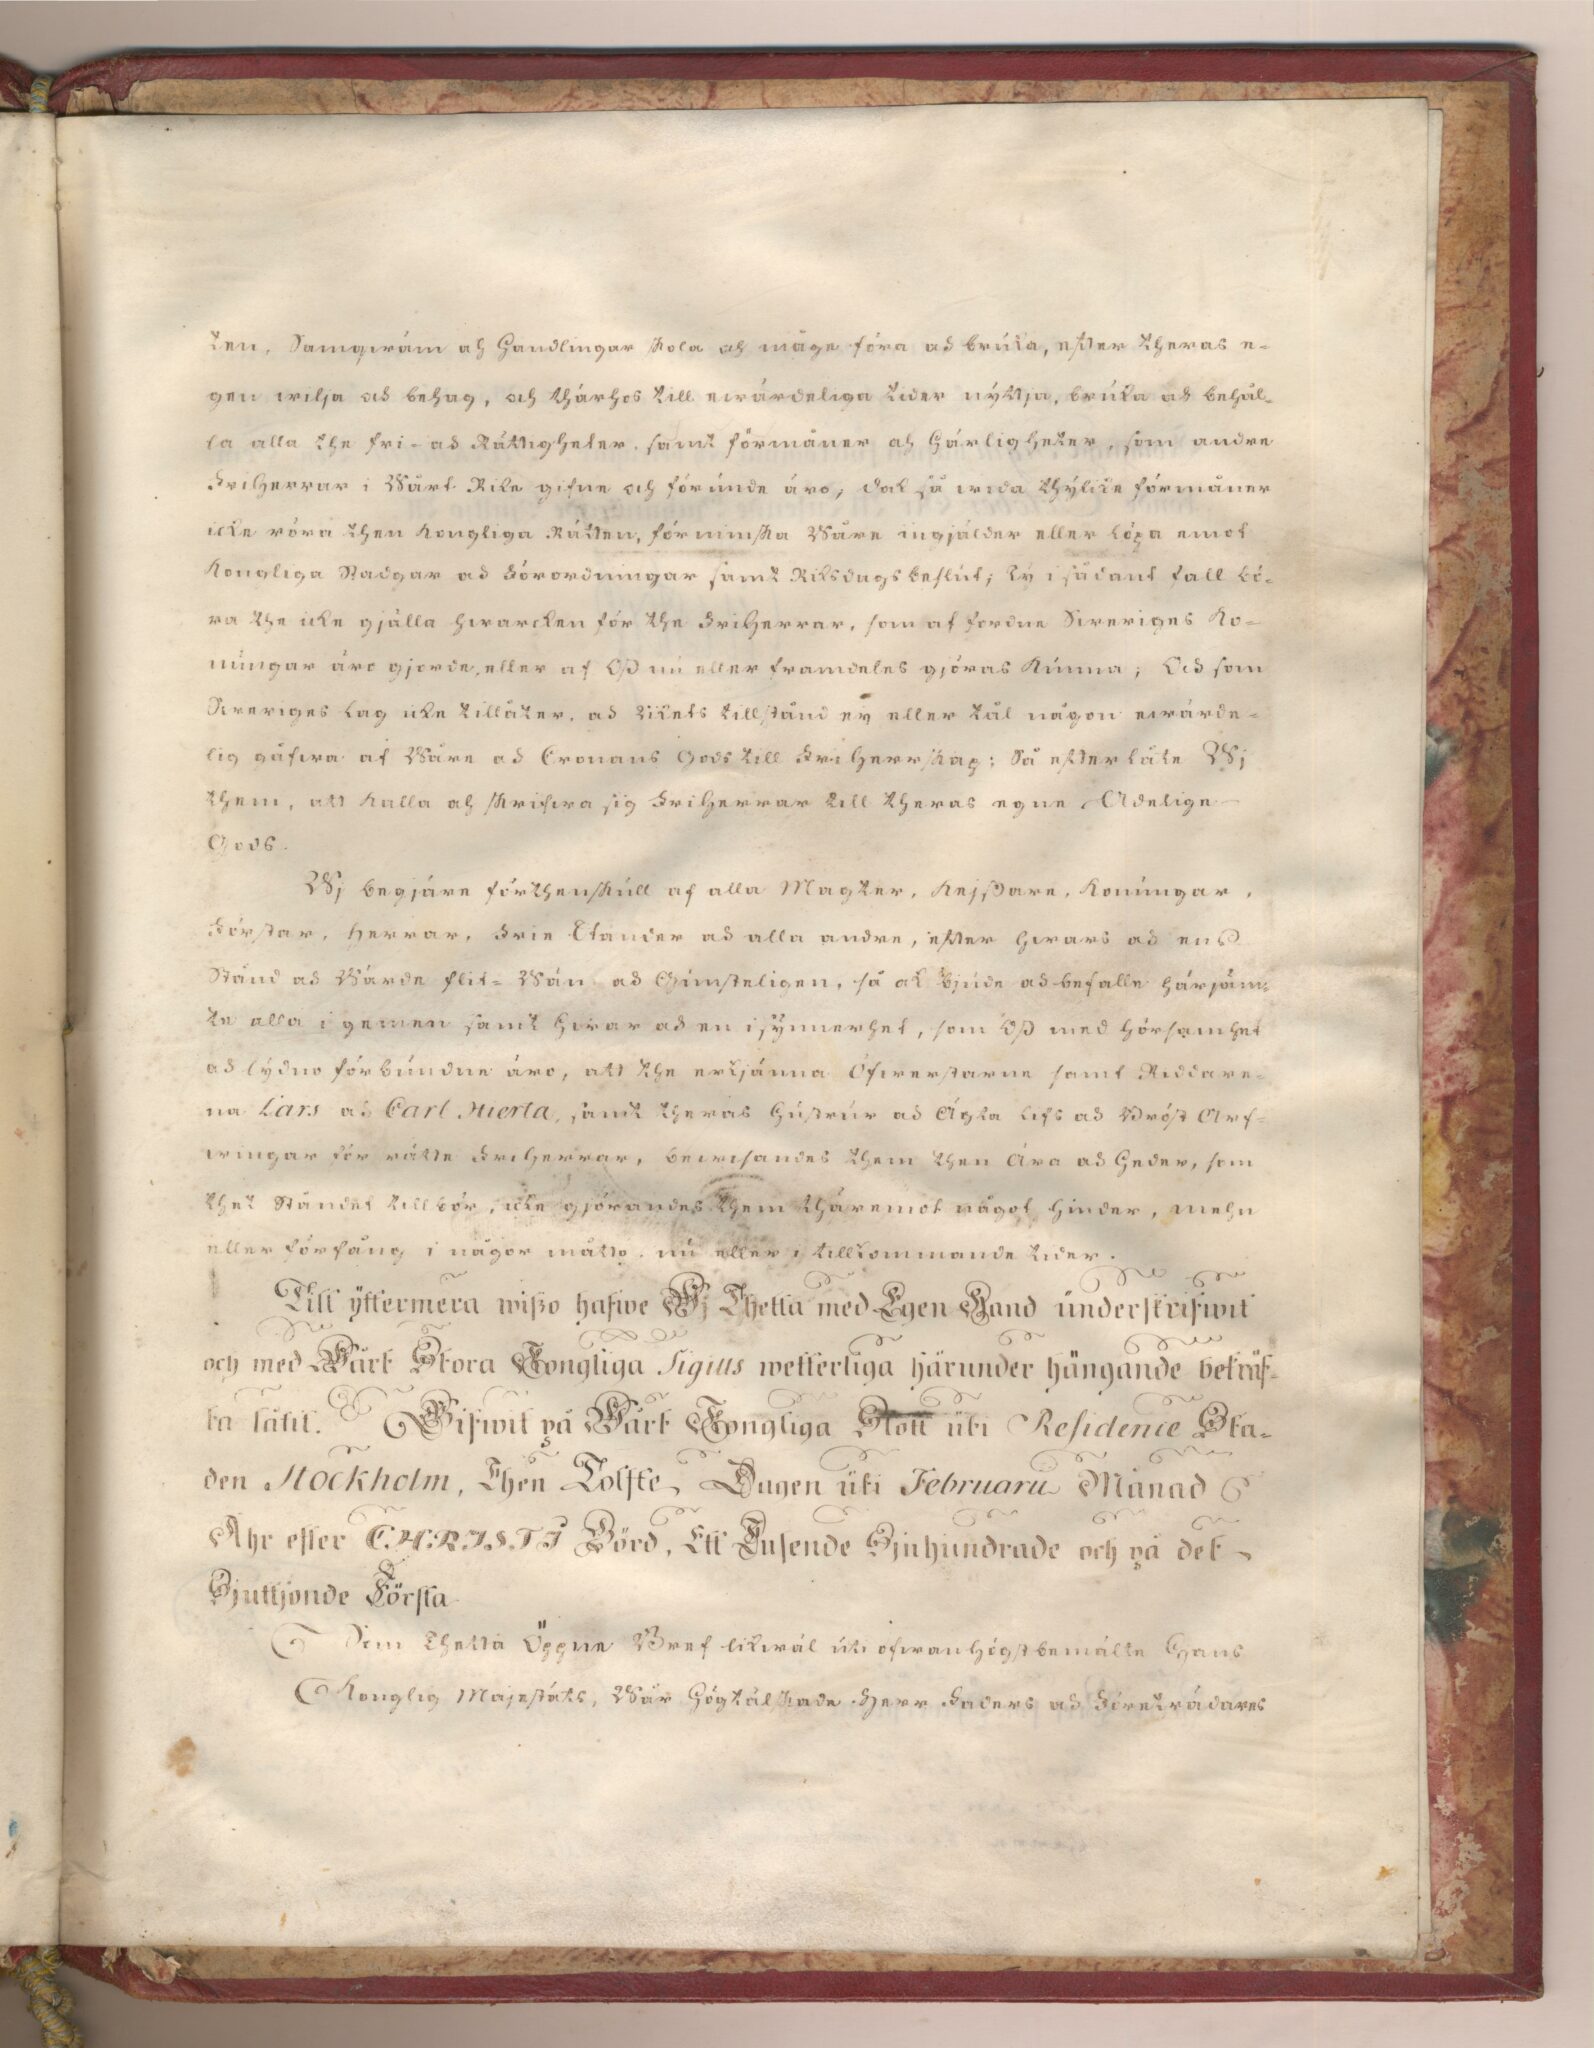 ten, Samqwäm och Handlingar skola och måge föra och brúka, efter theras e-
gen wilja och behag, och thärhos till ewärdeliga tider nýttja, brúka och behål-
la alla the fri- och Rättigheter, samt förmåner och Härligheter, som andre
FriHerrar i Wårt Rike gifne och förúnde äro, dock så wida thýlike förmåner
icke röra then Kongliga Rätten, förminska Wåre ingjälder eller löpa emot
Kongliga Stadgar och Förordningar samt Riksdags beslút; Tý i sådant fall bö-
ra the icke gjälla hwarcken för the FriHerrar, som af fordne Sweriges Ko-
núngar äro gjorde, eller af Oß nú eller framdeles gjöras kúnna; Och som
Sweriges Lag icke tillåter, och Rikets tillstånd ey eller tål någon ewärde-
lig gåfwa af Wåre och Cronans Gods till FriHerrskap; Så efterlåte Wj
them, att kalla och skrifwa sig FriHerrar till theras egne Adelige
Gods.
Wj begjäre förthenskúll af alla Magter, Kejsare, Konúngar,
Förstar, Herrar, Frie Stander och alla andre, efter hwars och ens
Stånd och Wärde flit- Wän- och Gúnsteligen, så ock bjúde och befalle härjäm-
te alla i gemen samt hwar och en i sýnnerhet, som Oß med hörsamhet
och lýdno förbúndne äro, att the erkjänna Öfwerstarne samt Riddare-
na Lars och Carl Hierta, samt theras Hústrúr och Ägta Lifs och Bröst Arf-
wingar för rätte FriHerrar, bewisandes them then Ära och Heder, som
thet Ståndet tillbör, icke gjörandes them thäremot något hinder, mehn
eller förfång i någor måtto, nú eller i tillkommande tider.
Till ýttermera wißo hafwe Wj Thetta med Egen Hand únderskrifwit
och med Wårt Stora Kongliga Sigills wetterliga härunder hängande bekräf-
ta låtit. Gifwit på Wårt Kongliga Slott úti Residence Sta-
den Stockholm, Then Tolfte Dagen úti Februarii Månad
Ahr efter CHRISTI Börd, Ett Tusende Sjuhúndrade och på det
Sjuttjonde Första.
Som Thetta Öppne Bref likwäl úti ofwanhögstbemälte Hans
Konglig Majestäts, Wår Högtälskade Herr Faders och Företrädares